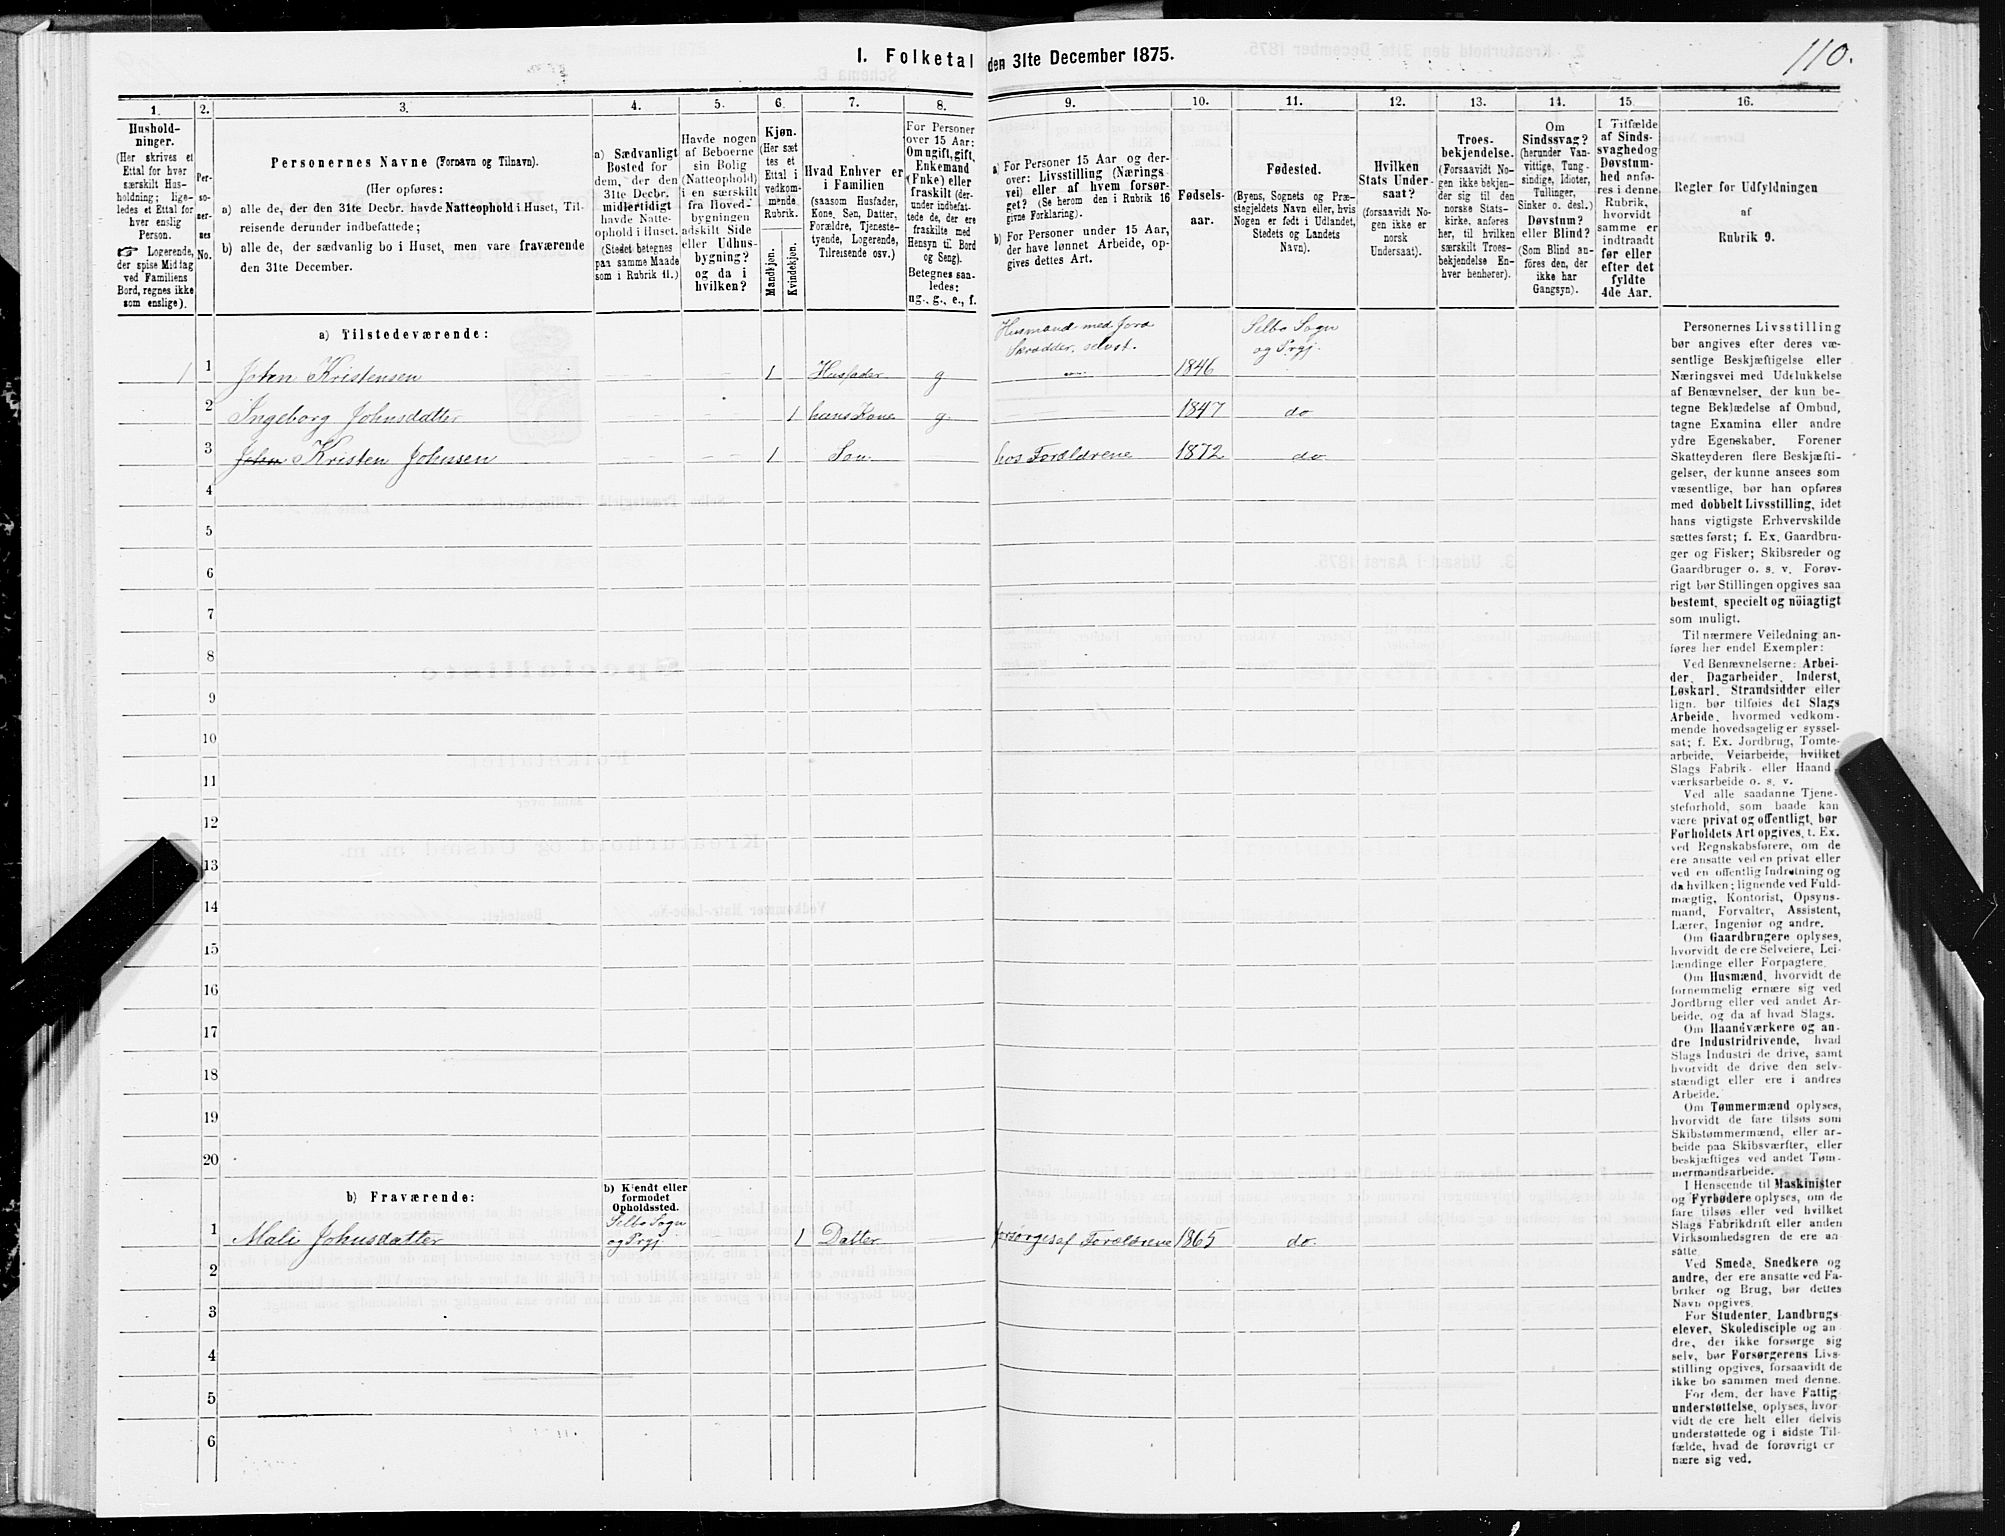 110.
1. Folketal den 31te December 1875.
1.
Hushold-
ninger.
(Her skrives et
Ettal for hver
særskilt Hus-
holdning; lige-
ledes et Ettal for
hver enslig
Person.
☞ Logerende,
der spise Middag
ved Familiens
Bord, regnes ikke
som enslige).
2.
Per-
so-
ner-
nes
No.
3.
Personernes Navne (Fornavn og Tilnavn).
(Her opføres:
a) alle de, der den 31te Decbr. havde Natteophold i Huset, Til-
reisende derunder indbefattede;
b) alle de, der sædvanlig bo i Huset, men vare fraværende
den 31te December.
4.
a) Sædvanligt
Bosted for
dem, der den
31te Decbr.
midlertidigt
havde Natte-
ophold i Huset.
(Stedet betegnes
paa samme Maade
som i Rubrik 11.)
5.
Havde nogen
af Beboerne
sin Bolig
(Natteophold)
i en særskilt
fra Hoved-
bygningen
adskilt Side
eller Udhus-
bygning?
og da i
hvilken?
6.
Kjøn.
(Her sæt
tes et
Ettal i
vedkom-
mende
Rubrik.
Mandkjøn.
Kvindekjøn.
7.
Hvad Enhver er
i Familien
(saasom Husfader,
Kone, Søn, Datter,
Forældre, Tjeneste-
tyende, Logerende,
Tilreisende osv.)
8.
For Personer
over 15 Aar:
Om ugift, gift,
Enkemand
(Enke) eller
fraskilt (der-
under indbefat-
tede de, der ere
fraskilte med
Hensyn til Bord
og Seng).
Betegnes saa-
ledes:
ug., g., e., f.
9.
a) For Personer 15 Aar og der-
over: Livsstilling (Nærings
vei) eller af hvem forsør-
get? (Se herom den i Rubrik 16
givne Forklaring).
b) For Personer under 15 Aar,
der have lønnet Arbeide, op-
gives dettes Art.
10.
Fødsels-
aar.
11.
Fødested.
(Byens, Sognets og Præ-
stegjeldets Navn eller, hvis
Nogen er født i Udlandet,
Stedets og Landets
Navn).
12.
Hvilken
Stats Under-
saat?
(forsaavidt No-
gen ikke er
norsk
Undersaat).
13.
Troes-
bekjendelse.
(Forsaavidt No-
gen ikke bekjen-
der sig til den
norske Stats-
kirke, anføres
her, til hvilken
særskilt Troes-
bekjendelse En-
hver henhører).
14.
Om
Sindssvag?
(herunder Van-
vittige, Tung-
sindige, Idioter,
Tullinger,
Sinker o. desl.)
Døvstum?
eller Blind?
(Som Blind an-
føres den, der
ikke har
Gangsyn).
15.
I Tilfælde
af Sinds-
svaghed og
Døvstum-
hed anfø-
res i denne
Rubrik,
hvorvidt
samme er
indtraadt
før eller
efter det
fyldte
4de Aar.
16.
Regler for Udfyldningen
af
Rubrik 9.
a) Tilstedeværende:
Husmand med Jord
Skrædder, selvst.
Selbo Sogn
og Prgj.
1 1 John Kristensen 1 Husfader g 1846
2 Ingeborg Johnsdatter 1 hans Kone g 1847 do
3 John Kristen Johnsen 1 Søn hos Forældrene 1872 do
4
5
6
7
8
9
10
11
12
13
14
15
16
17
18
19
20
b) Fraværende:
b) Kjendt eller
formodet
Opholdssted.
Selbo Sogn
og Prgj.
1 Mali Johnsdatter 1 Datter forsørges af Forældrene 1865 do.
2
3
4
5
6
Personernes Livsstilling
bør angives efter deres væ-
sentlige Beskjæftigelse eller
Næringsvei med Udelukkelse
af Benævnelser, der kun be-
tegne Beklædelse af Ombud,
tagne Examina eller andre
ydre Egenskaber. Forener
Skatteyderen flere Beskjæfti-
gelser, der kunne ansees som
væsentlige, bør han opføres
med dobbelt Livsstilling, idet
hans vigtigste Erhvervskilde
sættes først; f. Ex. Gaardbru-
ger og Fisker; Skibsreder og
Gaardbruger o. s. v. Forøv-
rigt bør Stillingen opgives saa
bestemt, specielt og nöiagtigt
som muligt.
Til nærmere Veiledning an-
føres her endel Exempler:
Ved Benævnelserne: Arbei-
der, Dagarbeider, Inderst,
Løskarl, Strandsidder eller
lign. bør tilføies det Slags
Arbeide, hvormed vedkom-
mende hovedsagelig er syssel-
sat; f. Ex. Jordbrug, Tomte-
arbeide, Veiarbeide, hvilket
Slags Fabrik- eller Haand-
værksarbeide o. s. v.
Ved alle saadanne Tjene-
steforhold, som baade kan
være privat og offentligt, bør
Forholdets Art opgives, t. Ex.
ved Regnskabsførere, om de
ere ansatte ved en privat eller
ved en offentlig Indretning og
da hvilken; lignende ved Fuld-
mægtig, Kontorist, Opsyns-
mand, Forvalter, Assistent,
Lærer, Ingeniør og andre.
Om Gaardbrugere oplyses,
hvorvidt de ere Selveiere, Lei-
lændinge eller Forpagtere.
Om Husmænd, hvorvidt de
fornemmelig ernære sig ved
Jordbrug eller ved andet Ar-
beide, og da af hvad Slags.
Om Haandværkere og an-
dre Industridrivende, hvad
Slags Industri de drive, samt
hvorvidt de drive den selv-
stændigt eller ere i andres
Arbeide.
Om Tømmermænd oplyses,
hvorvidt de fare tilsøs som
Skibstømmermænd, eller ar-
beide paa Skibsværfter, eller
beskjæftiges ved andet Tøm-
mermandsarbeide.
I Henseende til Maskinister
og Fyrbødere oplyses, om de
fare tilsøs eller ved hvilket
Slags Fabrikdrift eller anden
Virksomhedsgren de ere an-
satte.
Ved Smede, Snedkere og
andre, der ere ansatte ved Fa-
briker og Brug, bør dettes
Navn opgives.
For Studenter, Landbrugs-
elever, Skoledisciple og an-
dre, der ikke forsørge sig
selv, bør Forsørgerens Livs-
stilling opgives, forsaavidt de
ikke bo sammen med denne.
For dem, der have Fattig-
understøttelse, oplyses, hvor-
vidt de ere helt eller delvis
understøttede og i sidste Til-
fælde, hvad de forøvrigt er-
nære sig ved.